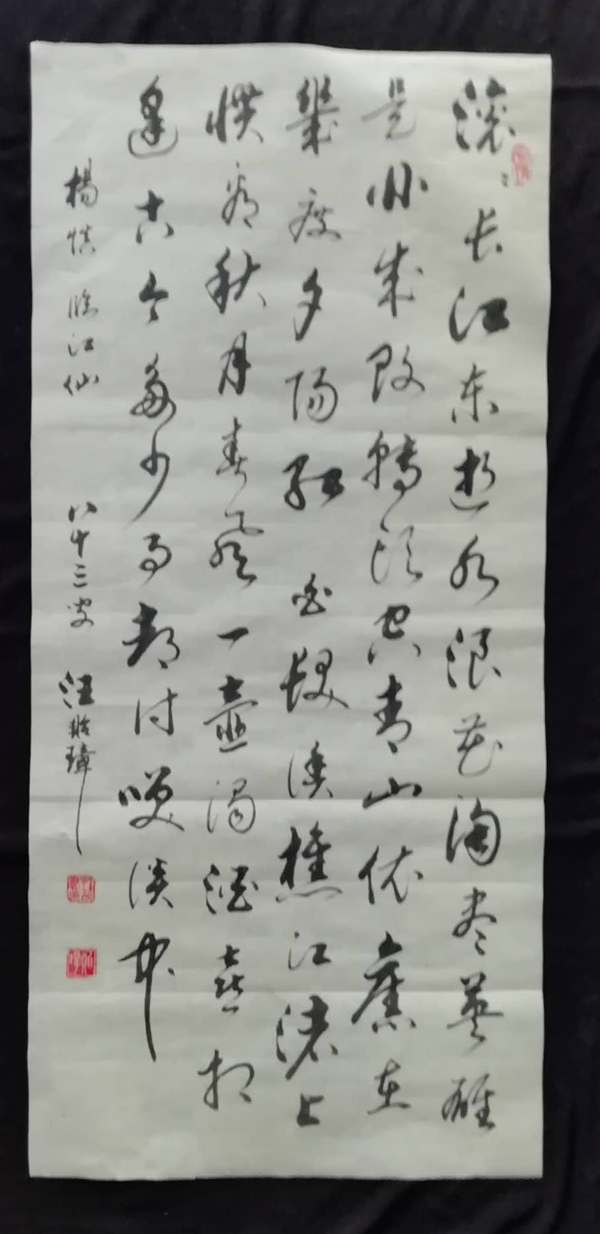 滚〻长江东逝水浪花淘尽英雄
是非成败转头空青山依舊在
幾度夕阳红 白髮渔樵江渚上
惯看秋月春风一壶浊酒喜相
逢古今多少事都付笑谈中
楊慎临江仙 八十三叟 汪璋